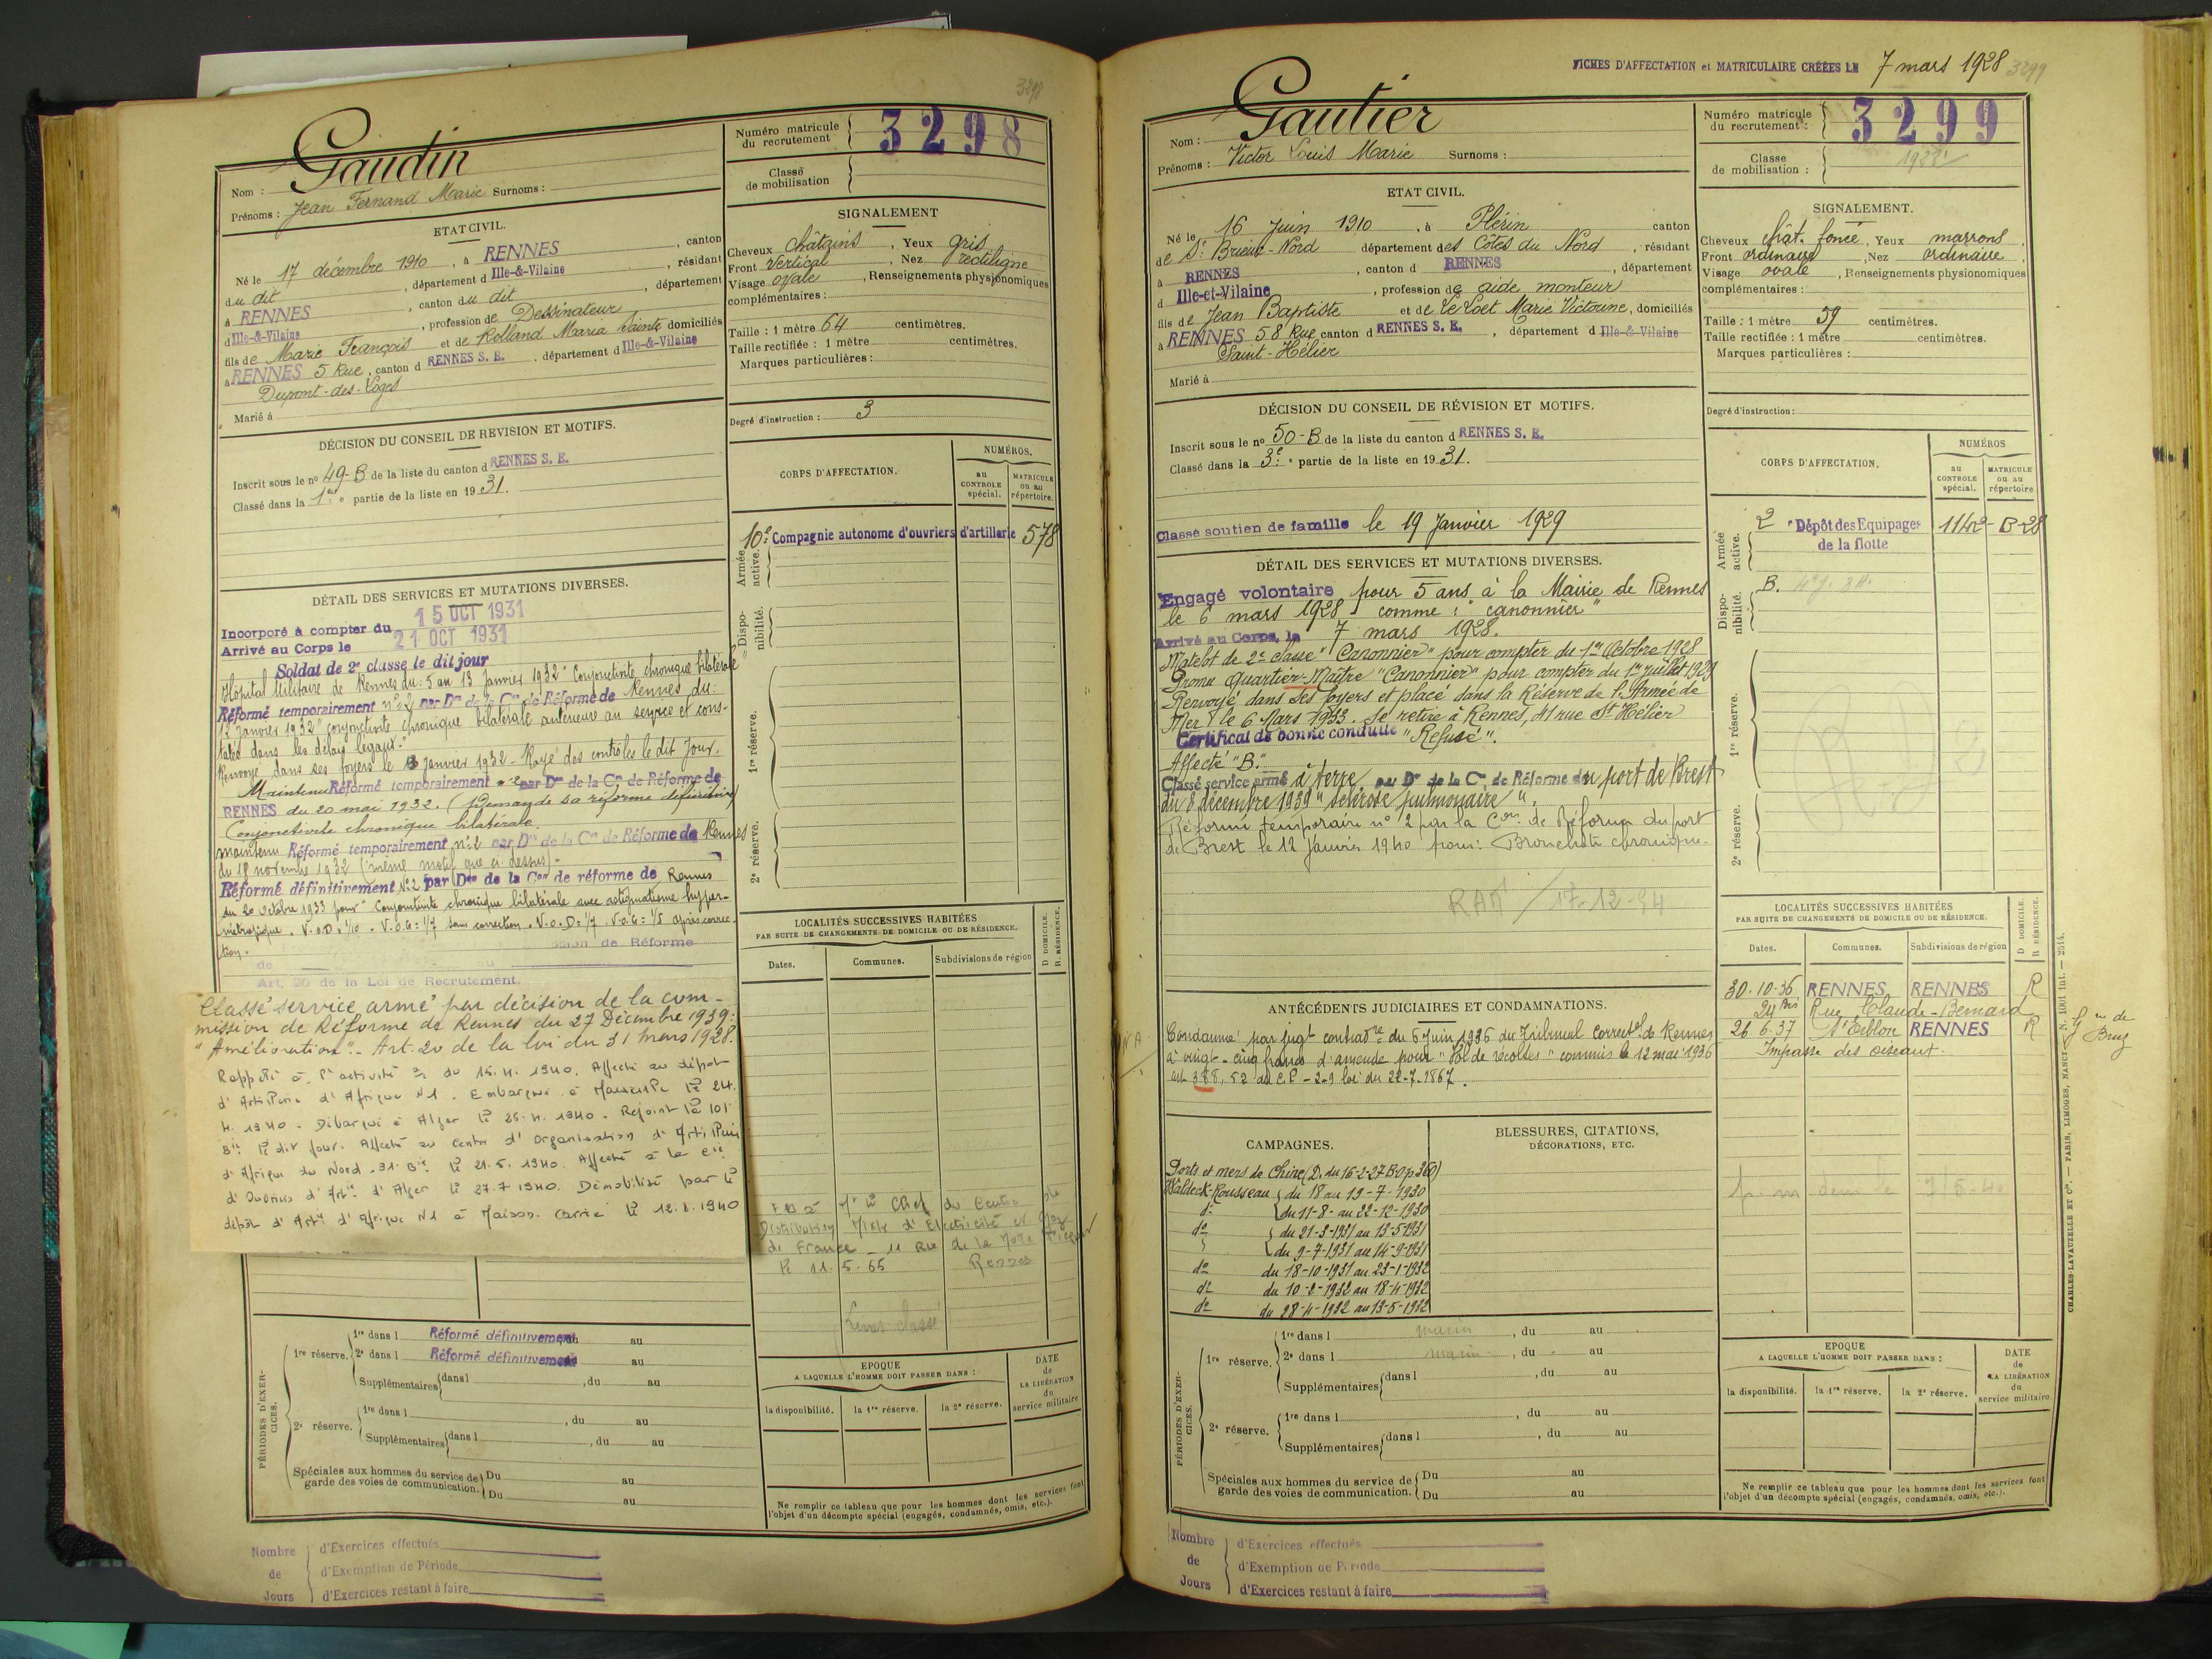 3298
Gaudin
Nom :
Prénoms : Jean Fernand Marie Surnoms :
Numéro matricule du recrutement 3298
Classe de mobilisation
ETAT CIVIL.
Né le 17 décembre 1910, à RENNES, canton
du dit, département d Ille-&-Vilaine, résidant
à RENNES, canton du dit, département
d Ille-&-Vilaine, profession de Dessinateur
fils de Marie François et de Rolland Maria Sainte domiciliés
à RENNES 5 Rue, canton d RENNES S. E., département d Ille-&-Vilaine
Dupont-des-Loges
Marié à
SIGNALEMENT
Cheveux châtains, Yeux gris
Front Vertical, Nez rectiligne
Visage ovale, Renseignements physionomiques
complémentaires :
Taille : 1 mètre 64 centimètres.
Taille rectifiée : 1 mètre centimètres.
Marques particulières :
Degré d'instruction : 3
DÉCISION DU CONSEIL DE REVISION ET MOTIFS.
Inscrit sous le no 49-B de la liste du canton d RENNES S. E.
Classé dans la 1re partie de la liste en 1931.
CORPS D'AFFECTATION.
NUMÉROS.
au CONTROLE spécial.
MATRICULE ou au répertoire.
Armée active.
10e Compagnie autonome d'ouvriers d'artillerie 578
Disponibilité.
1re réserve.
2e réserve.
DÉTAIL DES SERVICES ET MUTATIONS DIVERSES.
Incorporé à compter du 15 OCT 1931
Arrivé au Corps le 21 OCT 1931
Soldat de 2e classe le dit jour
Hôpital Militaire de Rennes du : 5 au 13 Janvier 1932 "Conjonctivite chronique bilatérale"
Réformé temporairement no 2 par Don de la Con de Réforme de Rennes du
12 Janvier 1932 "conjonctivite chronique bilatérale antérieure au service et cons-
tatée dans les délais légaux."
Renvoyé dans ses foyers le 13 janvier 1932 - Rayé des contrôles le dit jour.
Maintenu Réformé temporairement no 2 par Don de la Con de Réforme de
RENNES du 20 mai 1932. (Demande sa réforme définitive)
Conjonctivite chronique bilatérale
maintenu Réformé temporairement no 2 par Don de la Con de Réforme de Rennes
du 18 novembre 1932 (même motif que ci-dessus).
Réformé définitivement No 2 par Don de la Con de réforme de Rennes
du 20 octobre 1933 pour "Conjonctivite chronique bilatérale avec astigmatisme hyper-
métropique. V.O.D. = 1/10. V.O.G = 1/7 sans correction. V.O.D = 1/7. V.O.G = 1/5 après correc-
tion.
de Réforme
de
Art. 20 de la Loi de Recrutement.
Classé service armé par décision de la com-
mission de Réforme de Rennes du 27 Décembre 1939:
"Amélioration". Art. 20 de la loi du 31 mars 1928.
Rappelé à l'activité du 15.4.1940. Affecté au dépôt
d'Artillerie d'Afrique N1. Embarqué à Marseille le 24.
4.1940. Débarqué à Alger le 25.4.1940. Rejoint la 101
Bie le dit jour. Affecté au Centre d'Organisation d'Artillerie
d'Afrique du Nord. 31 Bie le 21.5.1940. Affecté à la Cie
d'Ouvriers d'Artie d'Alger le 27.7.1940. Démobilisé par le
dépôt d'Artie d'Afrique N1 à Maison Carrée le 12.8.1940
LOCALITÉS SUCCESSIVES HABITÉES
PAR SUITE DE CHANGEMENTS DE DOMICILE OU DE RÉSIDENCE.
D DOMICILE. R RÉSIDENCE.
Dates. Communes. Subdivisions de région
Mr le Chef du Centre de
Distribution Mixte d'Electricité et Gaz
de France - 11 Rue de la
le 11.5.65 Rennes
PÉRIODES D'EXERCICES.
1re réserve. 1re dans l Réformé définitivement au
2e dans l Réformé définitivement au
Supplémentaires dans l, du au
2e réserve. 1re dans l, du au
Supplémentaires dans l, du au
Spéciales aux hommes du service de garde des voies de communication. Du au
Du au
EPOQUE
A LAQUELLE L'HOMME DOIT PASSER DANS :
la disponibilité. la 1re réserve. la 2e réserve.
DATE de LA LIBÉRATION du service militaire
Ne remplir ce tableau que pour les hommes dont les services font
l'objet d'un décompte spécial (engagés, condamnés, omis, etc.).
Nombre de Jours
d'Exercices effectués
d'Exemption de Période
d'Exercices restant à faire
FICHES D'AFFECTATION et MATRICULAIRE CRÉÉES LE 7 mars 1928 3299
Gautier
Nom :
Prénoms : Victor Louis Marie Surnoms :
Numéro matricule du recrutement : 3299
Classe de mobilisation :
ETAT CIVIL.
Né le 16 Juin 1910, à Plérin canton
de St Brieuc-Nord département des Côtes du Nord, résidant
à RENNES, canton d RENNES, département
d Ille-et-Vilaine, profession de aide monteur
fils de Jean Baptiste et de Le Loet Marie Victorine, domiciliés
à RENNES 58 Rue canton d RENNES S. E., département d Ille-&-Vilaine
Saint-Hélier
Marié à
SIGNALEMENT.
Cheveux chât. foncé, Yeux marrons
Front ordinaire, Nez ordinaire
Visage ovale, Renseignements physionomiques
complémentaires :
Taille : 1 mètre 59 centimètres.
Taille rectifiée : 1 mètre centimètres.
Marques particulières :
Degré d'instruction :
DÉCISION DU CONSEIL DE RÉVISION ET MOTIFS.
Inscrit sous le no 50-B de la liste du canton d RENNES S. E.
Classé dans la 3e partie de la liste en 1931.
Classé soutien de famille le 19 Janvier 1929
CORPS D'AFFECTATION.
NUMÉROS
au CONTROLE spécial.
MATRICULE ou au répertoire
Armée active.
2e Dépôt des Equipages de la flotte 1142-B-28
Disponibilité.
B.
1re réserve.
2e réserve.
DÉTAIL DES SERVICES ET MUTATIONS DIVERSES.
Engagé volontaire pour 5 ans à la Mairie de Rennes
le 6 mars 1928 comme : "canonnier"
Arrivé au Corps, le 7 mars 1928.
Matelot de 2e classe "Canonnier" pour compter du 1er Octobre 1928
Promu Quartier-Maître "Canonnier" pour compter du 1er juillet 1929
Renvoyé dans ses foyers et placé dans la Réserve de l'Armée de
Mer le 6 Mars 1933. Se retire à Rennes, 41 rue St Hélier
Certificat de bonne conduite "Refusé".
Affecté "B."
Classé service armé à terre par Don de la Con de Réforme du port de Brest
du 8 décembre 1939 "sclérose pulmonaire".
Réformé temporaire no 2 par la Con de Réforme du port
de Brest le 12 Janvier 1940 pour : Bronchite chronique.
RAT / 17-12-54
ANTÉCÉDENTS JUDICIAIRES ET CONDAMNATIONS.
Condamné par jugt contradre du 5 Juin 1936 du Tribunal Correctel de Rennes
à vingt-cinq francs d'amende pour "Vol de récoltes" commis le 12 mai 1936
art. 388, 52 du C.P - 2-9 loi du 22-7-1867.
CAMPAGNES.
BLESSURES, CITATIONS,
DÉCORATIONS, ETC.
Ports et mers de Chine (D. du 16-2-27 B.O p 360)
Waldeck-Rousseau du 18 au 19-7-1930
do du 11-8- au 22-12-1930
do du 21-3-1931 au 13-5-1931
du 9-7-1931 au 14-9-1931
do du 18-10-1931 au 23-1-1932
do du 10-2-1932 au 18-4-1932
do du 28-4-1932 au 13-5-1932
LOCALITÉS SUCCESSIVES HABITÉES
PAR SUITE DE CHANGEMENTS DE DOMICILE OU DE RÉSIDENCE.
D DOMICILE. R RÉSIDENCE.
Dates. Communes. Subdivisions de région
30.10.36 RENNES RENNES R
24 Bis Rue Claude-Bernard
26.6.37 St Erblon RENNES R
Impasse des oiseaux.
Gie de Bruz
CHARLES-LAVAUZELLE ET Cie. — PARIS, LIMOGES, NANCY. N. 1001 int. — 2514.
PÉRIODES D'EXERCICES.
1re réserve. 1re dans l marin, du au
2e dans l marin, du au
Supplémentaires dans l, du au
2e réserve. 1re dans l, du au
Supplémentaires dans l, du au
Spéciales aux hommes du service de garde des voies de communication. Du au
Du au
EPOQUE
A LAQUELLE L'HOMME DOIT PASSER DANS :
la disponibilité. la 1re réserve. la 2e réserve.
DATE de LA LIBÉRATION du service militaire
Ne remplir ce tableau que pour les hommes dont les services font
l'objet d'un décompte spécial (engagés, condamnés, omis, etc.).
Nombre de Jours
d'Exercices effectués
d'Exemption de Période
d'Exercices restant à faire